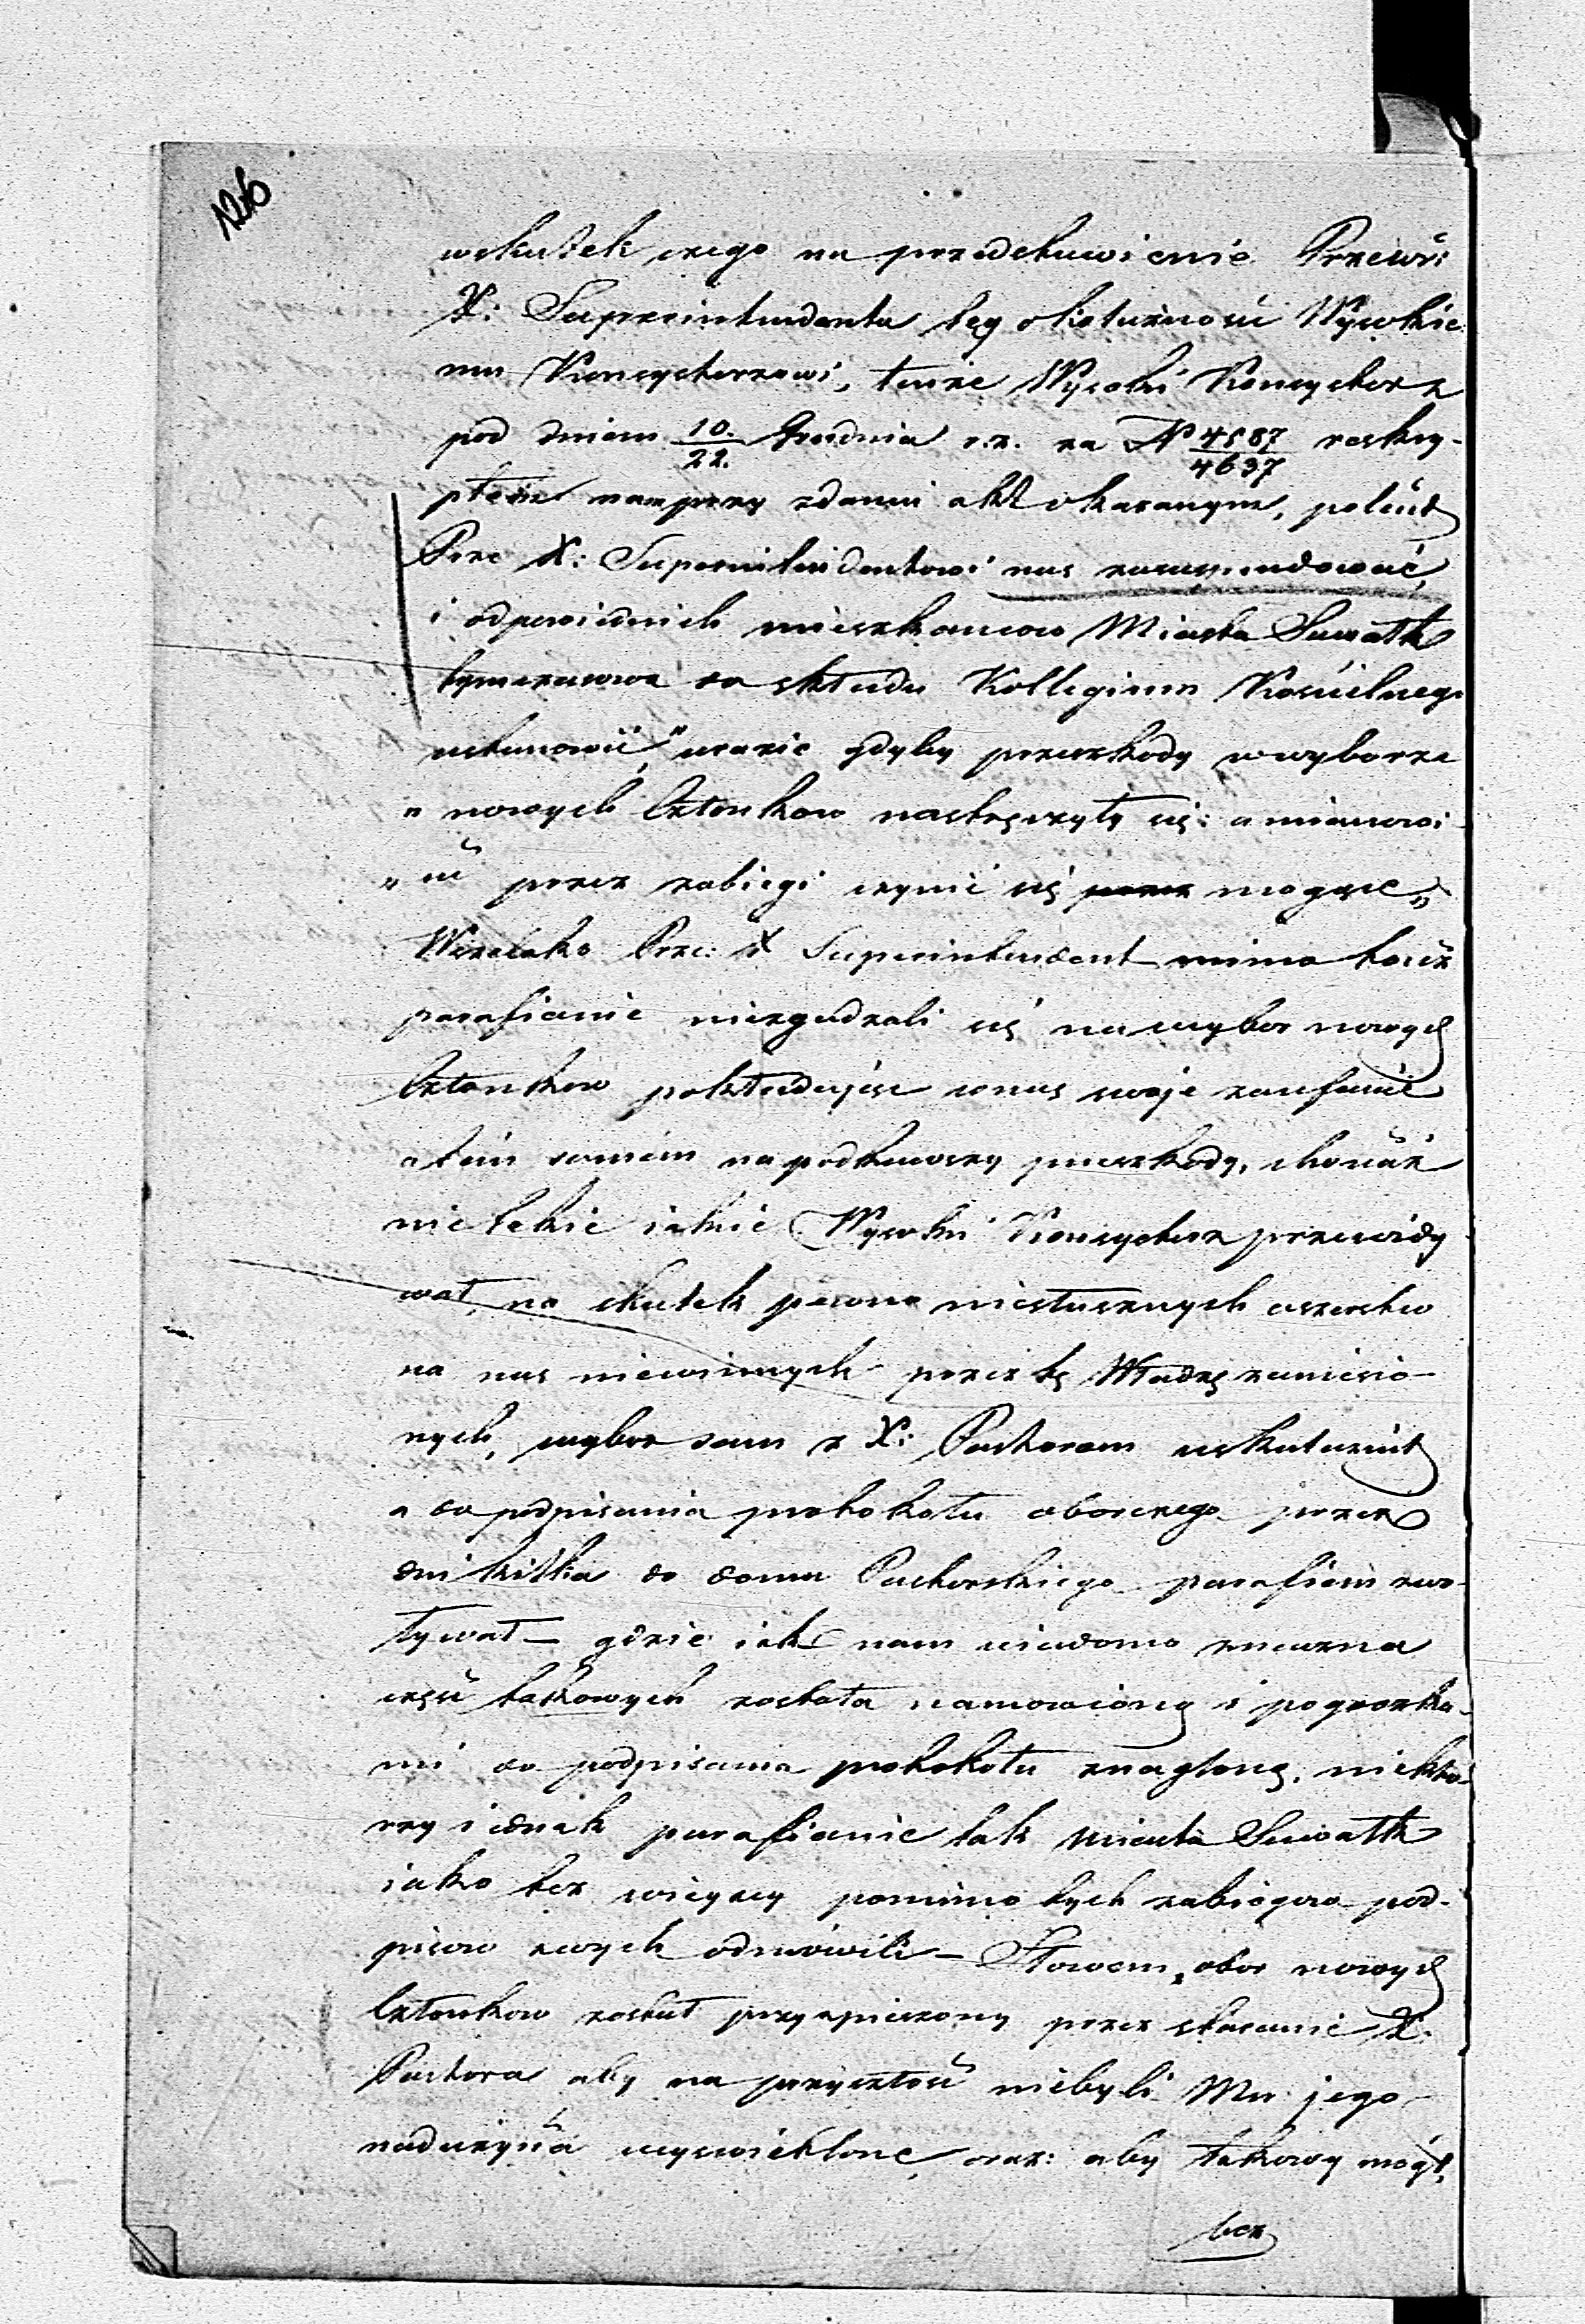 126
wskutek czego na przedstawienie Przew:
X: Superintendenta tęg okoliczność Wysokie
mu Konsystorzowi, tenże Wysoki Konsystorz
pod dniem 10./22. Grudnia r.z. za N 4587/4637 reskry-
ptem nam przy zdaniu akt okazanym, polecił
Prze X: Superintendentowi nas zasuspendować,
i odpowiednich mieszkancow Miasta Suwałk
tymczasowo do składu Kollegium Kościelnego
ustanowić, "w razie gdyby przeszkody w wyborze
" nowych Członkow nastręczyły się: a mianowi-
" cie przez zabiegi czynić się mogące"
Wszelako Prze: X Superintendent mimo to iż
parafianie niezgadzali się na wybor nowych
Członkow pokładając w nas swoje zaufanie
a tém samém napotkawszy przeszkody, chociaż
nie takie jakie Wysoki Konsystorz przewidy
wał, na skutek pewno niesłusznych oszczerstw
na nas niewinnych przez tę Władzę zaniesio-
nych, wybor sam z X: Pastorem uskutecznił
a do podpisania protokołu oborczego przez
dni kilka do domu Pastorskiego parafian zwo-
ływał – gdzie jak nam wiadomo znaczna
część takowych została namowioną i pogrozka-
mi do podpisania protokołu znagloną, niektó-
rzy jednak parafianie tak Miasta Suwałk
jako tez wieyscy pomimo tych zabiegow pod-
pisow swych odmówili – Słowem, obor nowych
Członkow został przyspieszony przez staranie X.
Pastora aby na przyszłość niebyli Mu jego
nadużycia wyswietlone, oraz: aby takowy mógł,
bez